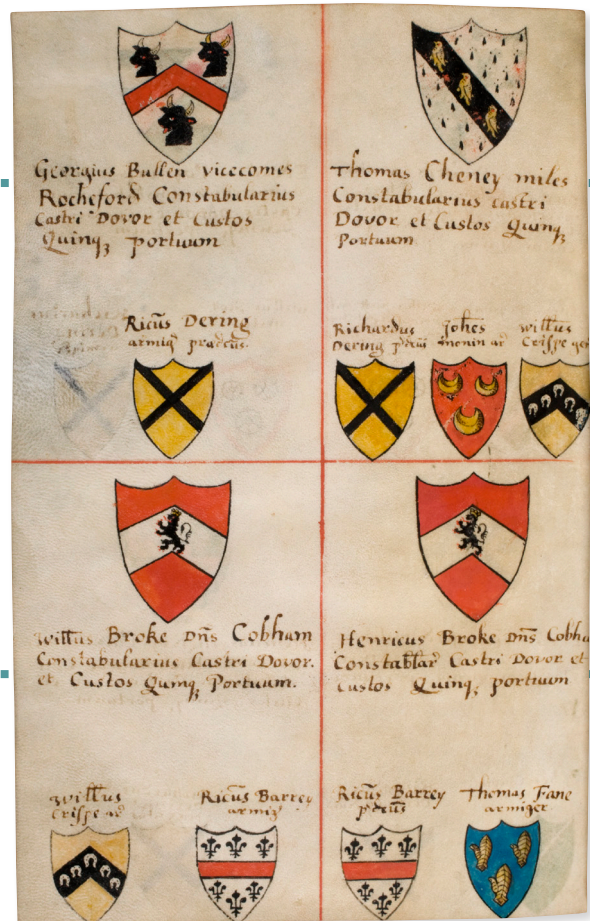 Georgius Bullen vicecomes
Rocheford Constabularius
Castri Dovor et Custos
Quinqꝫ portuum
Ricūs Dering
armigꝰ
Thomas Cheney miles
Constabularius castri
Dovor et Custos Quinqꝫ
Portuum
Richardus
Dering
Johēs
monin ar
willūs
Crispe
willūs Broke Dn̄s Cobham
Constabularius Castri Dovor.
et Custos Quinqꝫ Portuum.
willūs
Crispe ar
Ricūs Barrey
armigꝰ
Henricus Broke Dn̄s Cobha
Constablar Castri Dovor et
Custos Quinqꝫ portuum
Ricūs Barrey
Thomas Fane
armiger